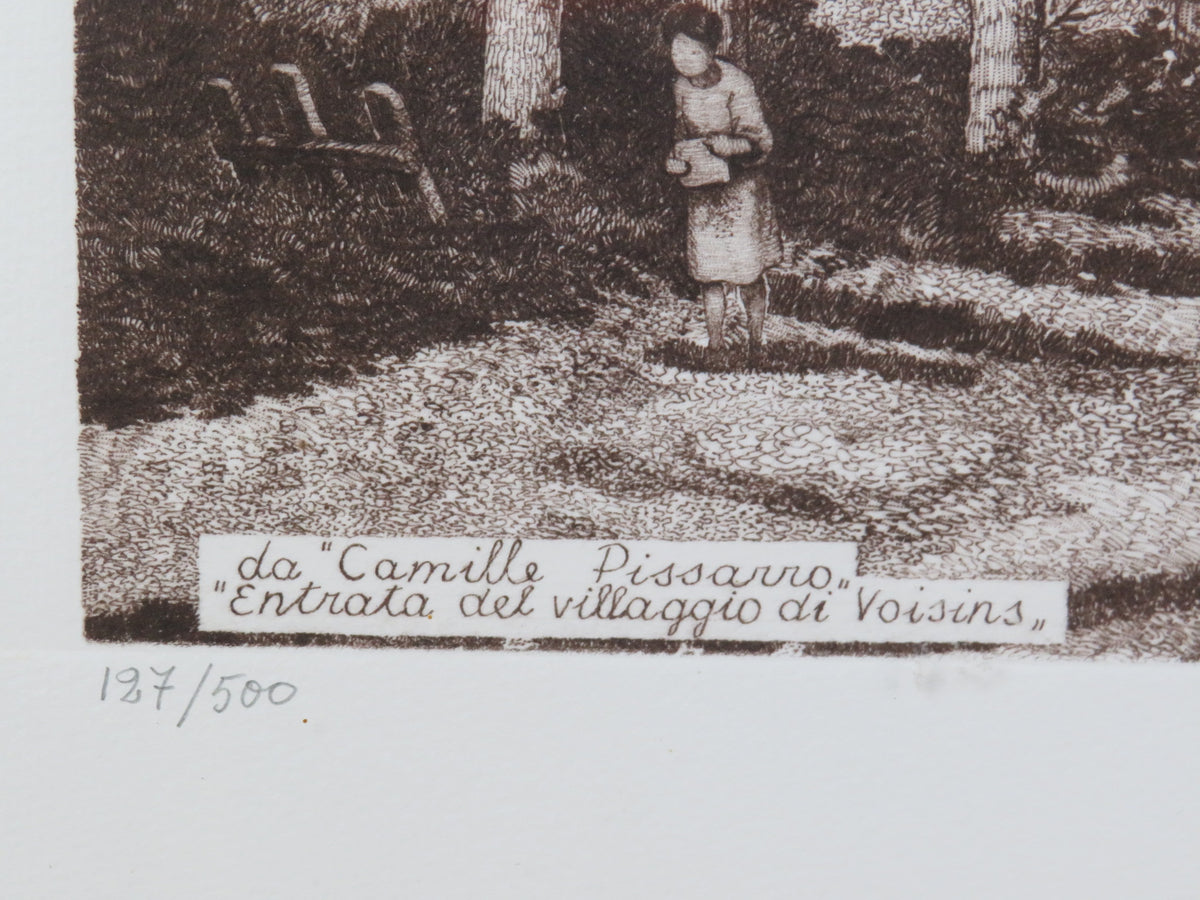 da "Camille Pissarro„
"Entrata del villaggio di "Voisins„
127/500